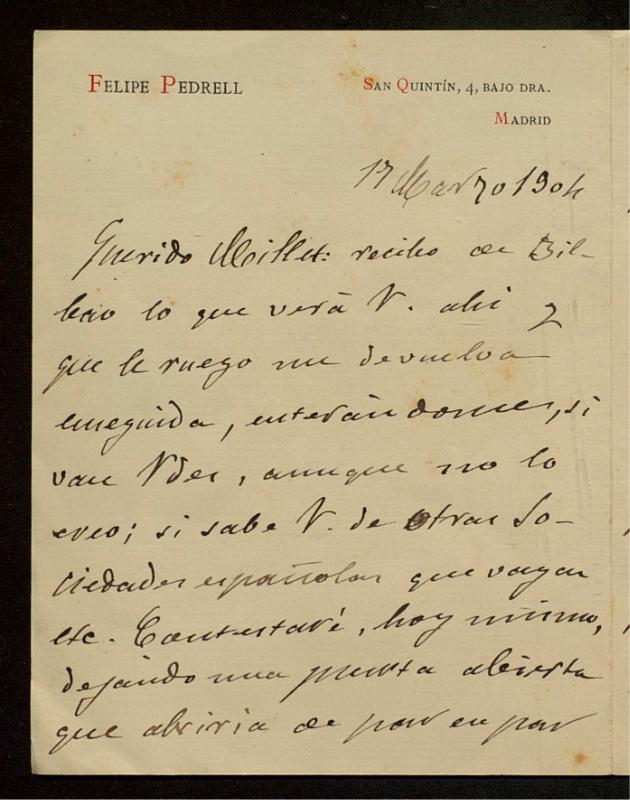 FELIPE PEDRELL
SAN QUINTÍN, 4, BAJO DRA.
MADRID
17 Marzo 1904
Querido Millet: recibo de Bil-
bao lo que verá V. ahi y
que le ruego me devuelva
enseguida, enterándome, si
van Vdes, aunque no lo
creo; si sabe V. de otras So-
ciedades españolas que vayan
etc. Contestaré, hoy mismo,
dejando una puerta abierta
que abriria de par en par